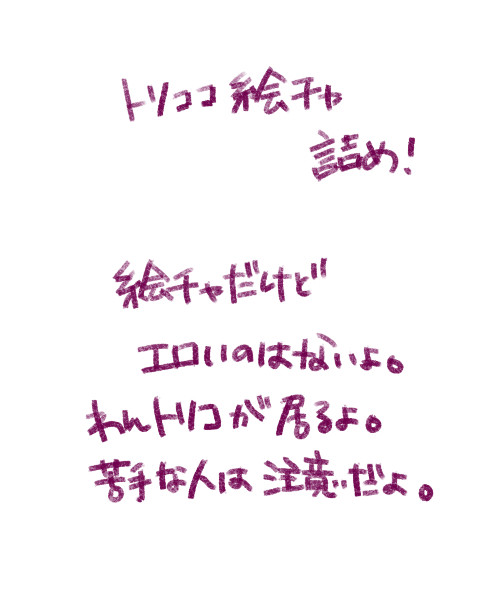 トリココ絵チャ
詰め!
絵チャだけど
エロいのはないよ。
わんトリコが居るよ。
苦手な人は注意だよ。